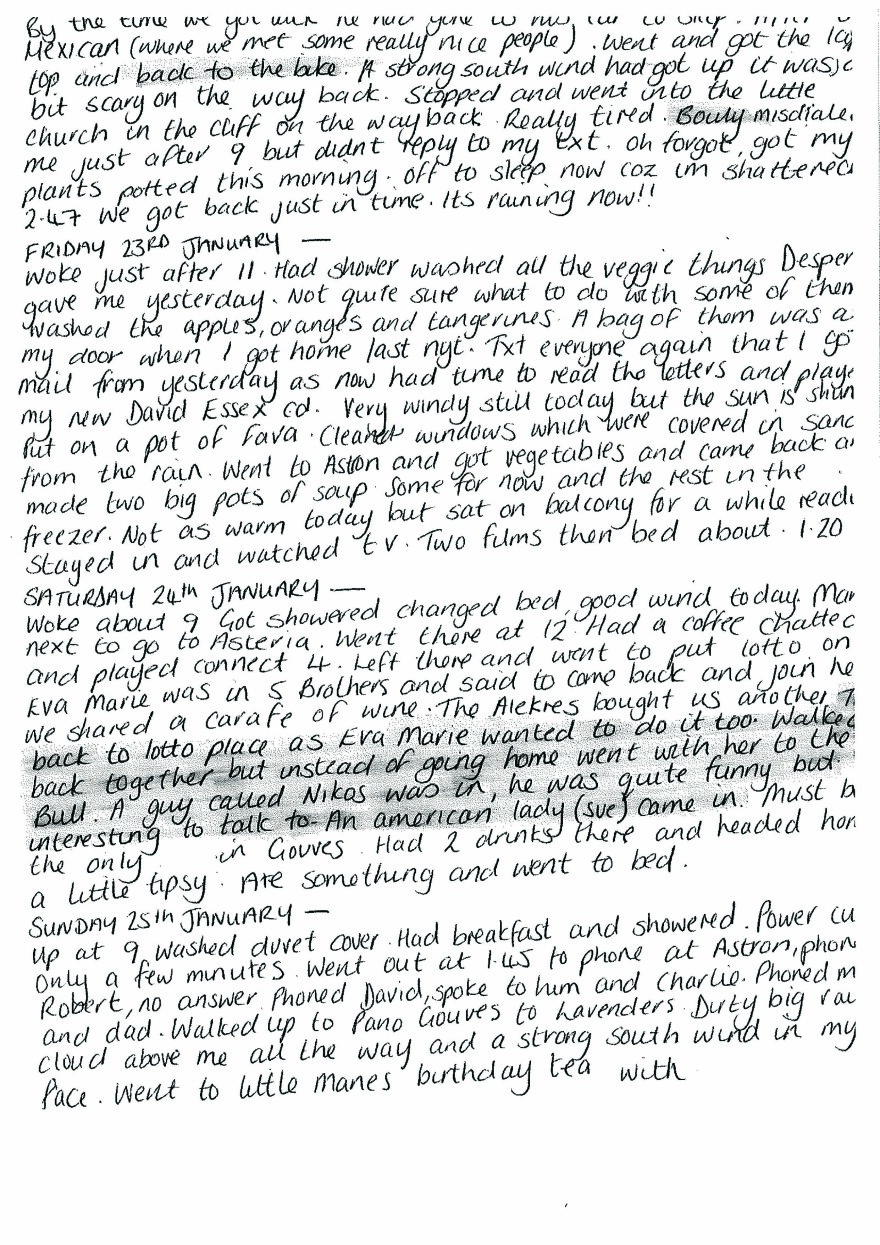 By the time we got back he had gone to his
Mexican (where we met some really nice people). Went and got the lap
top and back to the bike. A strong south wind had got up it was a
bit scary on the way back. Stopped and went into the little
church in the cliff on the way back. Really tired. Bouly misdiale
me just after 9 but didnt reply to my txt. oh forgot, got my
plants potted this morning. off to sleep now coz im shattered
2.47 We got back just in time. Its raining now!!
FRIDAY 23RD JANUARY —
Woke just after 11. Had shower washed all the veggie things Desper
gave me yesterday. Not quite sure what to do with some of them
Washed the apples, oranges and tangerines. A bag of them was a
my door when I got home last nyt. Txt everyone again that I go
mail from yesterday as now had time to read the letters and playe
my new David Essex cd. Very windy still today but the sun is shin
Put on a pot of Fava. Cleaned windows which were covered in sand
from the rain. Went to Aston and got vegetables and came back a
made two big pots of soup some for now and the rest in the
freezer. Not as warm today but sat on balcony for a while readi
Stayed in and watched t v. Two films then bed about. 1.20
SATURDAY 24th JANUARY —
Woke about 9 Got showered changed bed, good wind today. Mar
next to go to Asteria. Went there at 12. Had a coffee chatted
and played connect 4. Left there and went to put lotto on
Eva Marie was in 5 Brothers and said to come back and join he
we shared a carafe of wine. The Alekres bought us another. T
back to lotto place as Eva Marie wanted to do it too. Walked
back together but instead of going home went with her to the
Bull. A guy called Nikos was in, he was quite funny but
interesting to talk to. An american lady (sue) came in. Must b
the only in Gouves. Had 2 drinks there and headed hom
a little tipsy. Ate something and went to bed.
SUNDAY 25th JANUARY —
Up at 9, washed duvet cover. Had breakfast and showered. Power cu
only a few minutes. Went out at 1.45 to phone at Astron, phon
Robert, no answer. Phoned David, spoke to him and Charlie. Phoned m
and dad. Walked up to Pano Gouves to Lavenders. Dirty big rai
cloud above me all the way and a strong south wind in my
Face. Went to little manes birthday tea with